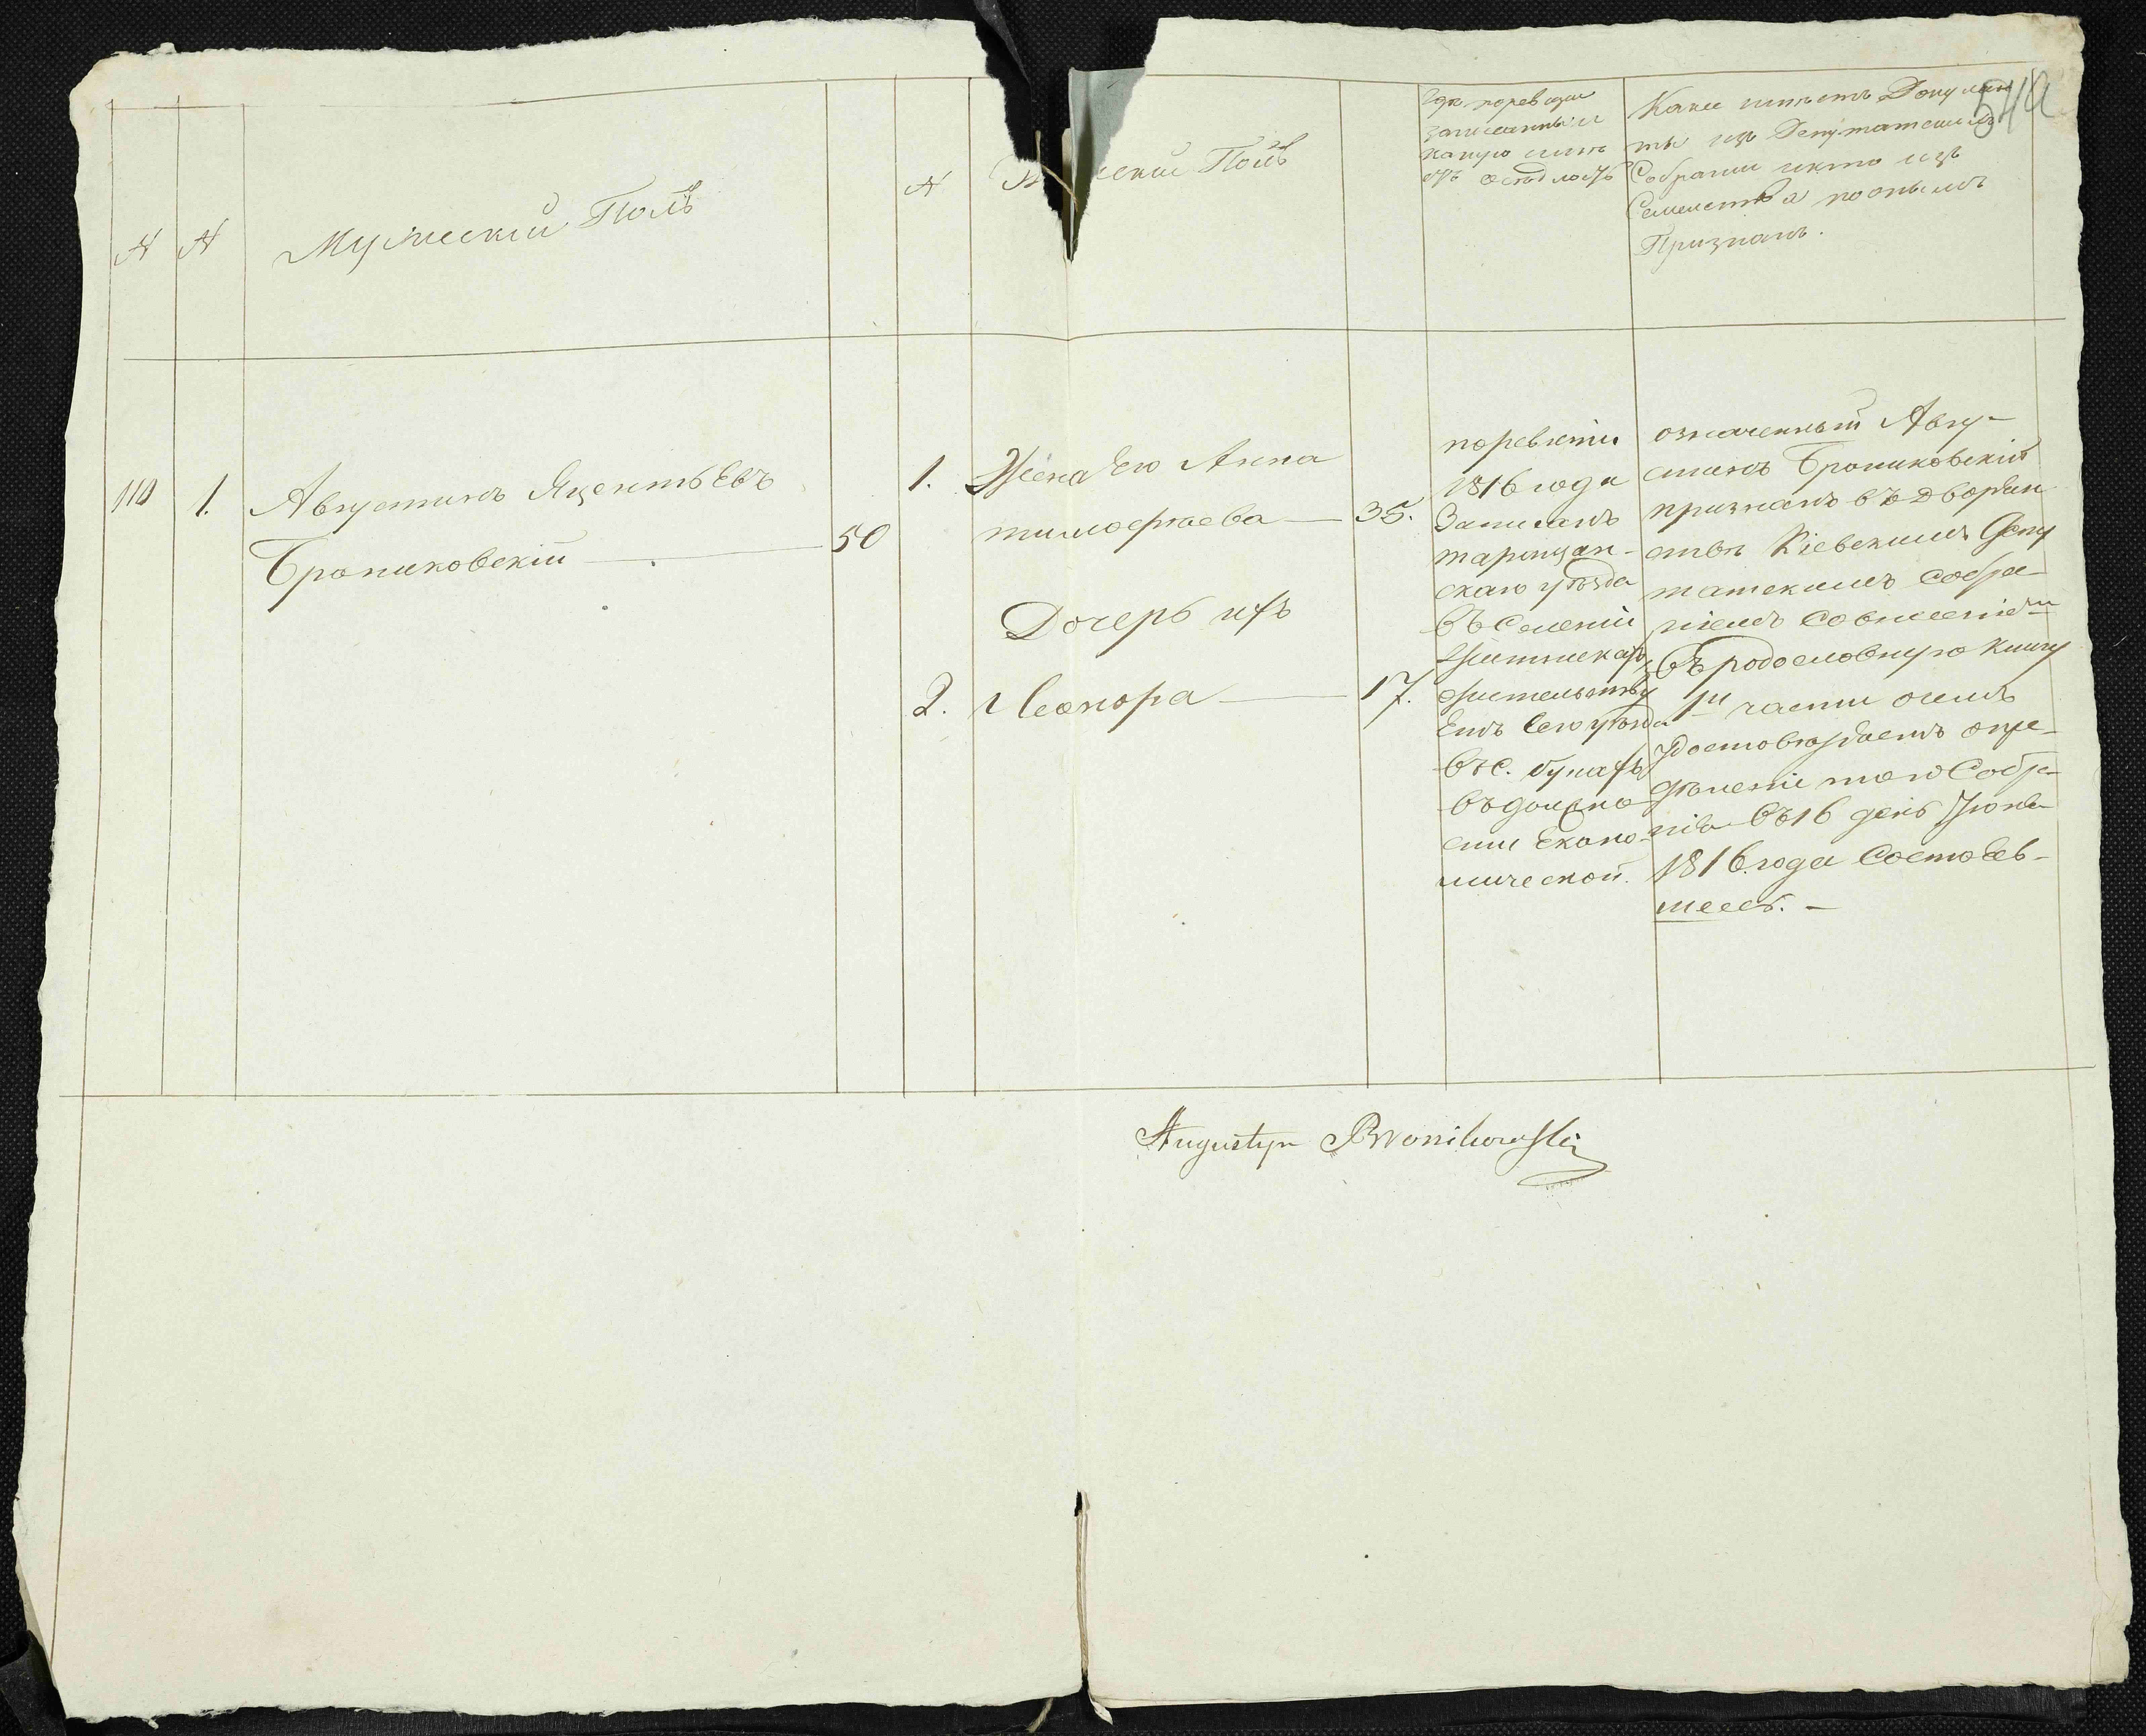 N
N
Мужескій Полъ
N
Же скій Полъ
Где по ревизіи
записанны и
какую имѣ
ютъ осѣдлость
Какіе имѣетъ Докумен
ты изъ Депутатскихъ
Собраніи и кто изъ
Семейства по онымъ
Признанъ.
110
1.
Августинъ Яцентьевъ
Брониковскій
50
1.
Жена Его Анна
тимофеева
35.
Дочерь ихъ
2.
Леонора
17.
по ревизіи
1816 года
Записанъ
таращан-
скаго уѣзда
въ Селеніи
жительству
Емъ Сего уѣзда
въ С.
въ должно
сти Еконо-
мической.
означенный Авгу-
стинъ Брониковскій
признанъ въ дворян
ствѣ Кіевскимъ Депу
татскимъ Собра
ніемъ со внесеніемъ
въ родословную книгу
1й части о чемъ
удостовѣряетъ опре-
дѣленіе того Собра-
нія въ 16 день Іюня
1816 года Состояв-
шеесъ. –
Augustyn Bronikowski